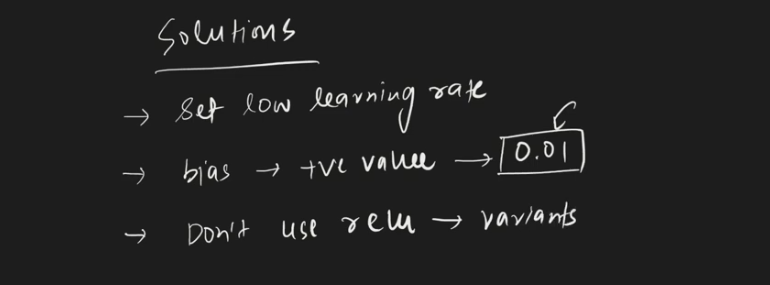 Solutions
→ Set low learning rate
→ bias → +ve value → 0.01
→ Don't use relu → variants